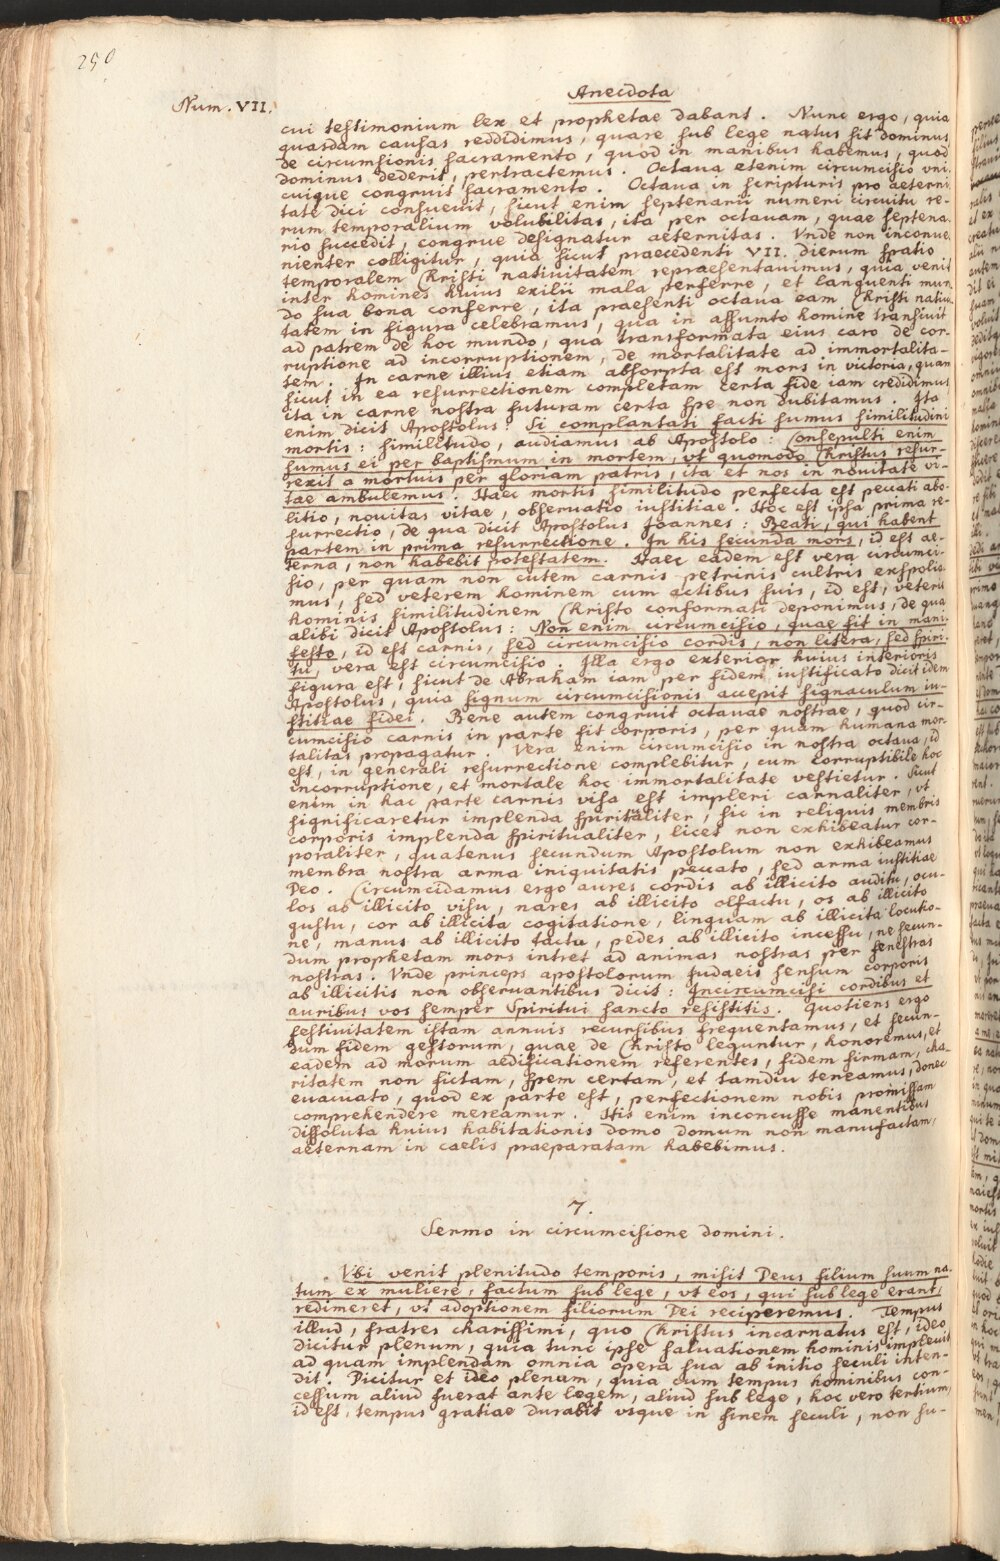 250
Anecdota
Num. VII.
cui testimonium lex et prophetae dabant. Nunc ergo, quia
quasdam causas reddidimus, quare sub lege natus sit dominus,
de circumsionis sacramento, quod in manibus habemus, quod
dominus dederit, pertractemus. Octaua etenim circumcisio vni-
cuique congruit sacramento. Octaua in scripturis pro aeterni
tate dici consueuit, sicut enim septenarii numeri circuitu re-
rum temporalium volubilitas, ita per octauam, quae septena
rio succedit, congrue designatur aeternitas. Vnde non inconue
nienter colligitur, quia sicut praecedenti VII. dierum spatio
temporalem Christi natiuitatem repraesentauimus, quia venit
inter homines huius exilii mala perferre, et languenti mun
do sua bona conferre, ita praesenti octaua eam Christi natiui
tatem in figura celebramus, qua in assumto homine transiuit
ad patrem de hoc mundo, qua transformata eius caro de cor-
ruptione ad incorruptionem, de mortalitate ad immortalita-
tem. In carne illius etiam absorpta est mors in victoria, quam
sicut in ea resurrectionem completam certa fide iam credidimus
ita in carne nostra futuram certa spe non dubitamus. Ita
enim dicit Apostolus: Si complantati facti sumus similitudini
mortis: similitudo, audiamus ab Apostolo: Consepulti enim
sumus ei per baptismum in mortem, vt quomodo Christus resur-
rexit a mortuis per gloriam patris, ita et nos in nouitate vi-
tae ambulemus. Haec mortis similitudo perfecta est peccati abo-
litio, nouitas vitae, obseruatio iustitiae. Hoc est ipsa prima re-
surrectio, de qua dicit Apostolus Joannes: Beati, qui habent
partem in prima resurrectione. In his secunda mors, id est ae-
terna, non habebit potestatem. Haec eadem est vera circumci-
sio, per quam non cutem carnis petrinis cultris exspolia-
mus, sed veterem hominem cum actibus suis, id est, veteris
hominis similitudinem Christo conformati deponimus, de qua
alibi dicit Apostolus: Non enim circumcisio, quae fit in mani
festo, id est carnis, sed circumcisio cordis, non litera, sed spiri-
tu, vera est circumcisio. Illa ergo exterior huius interioris
figura est, sicut de Abraham iam per fidem iustificato dicit idem
Apostolus, quia signum circumcisionis accepit signaculum iu-
stitiae fidei. Bene autem congruit octauae nostrae, quod cir-
cumcisio carnis in parte fit corporis, per quam humana mor-
talitas propagatur. Vera enim circumcisio in nostra octaua, id
est, in generali resurrectione complebitur, cum corruptibile hoc
incorruptione, et mortale hoc immortalitate vestietur. Sicut
enim in hac parte carnis visa est impleri carnaliter, vt
significaretur implenda spiritualiter, sic in reliquis membris
corporis implenda spiritualiter, licet non exhibeatur cor-
poraliter, quatenus secundum Apostolum non exhibeamus
membra nostra arma iniquitatis peccato, sed arma iustitiae
Deo. Circumcidamus ergo aures cordis ab illicito auditu, ocu-
los ab illicito visu, nares ab illicito olfactu, os ab illicito
gustu, cor ab illicita cogitatione, linguam ab illicita locutio-
ne, manus ab illicito tactu, pedes ab illicito incessu, ne secun-
dum prophetam mors intret ad animas nostras per fenestras
nostras. Vnde princeps apostolorum Judaeis sensum corporis
ab illicitis non obseruantibus dicit: Incircumcisi cordibus et
auribus vos semper Spiritui sancto resistitis. Quotiens ergo
festiuitatem istam annuis recursibus frequentamus, et secun-
dum fidem gestorum, quae de Christo leguntur, honoremus, et
eadem ad morum aedificationem referentes, fidem firmam, cha-
ritatem non fictam, spem certam, et tamdiu teneamus, donec
euacuato, quod ex parte est, perfectionem nobis promissam
comprehendere mereamur. His enim inconcusse manentibus
dissoluta huius habitationis domo domum non manufactam,
aeternam in caelis praeparatam habebimus.
7.
Sermo in circumcisione domini.
Vbi venit plenitudo temporis, misit Deus filium suum na-
tum ex muliere, factum sub lege, vt eos, qui sub lege erant,
redimeret, vt adoptionem filiorum Dei reciperemus. Tempus
illud, fratres charissimi, quo Christus incarnatus est, ideo
dicitur plenum, quia tunc ipse saluationem hominis impleuit
ad quam implendam omnia opera sua ab initio seculi inten-
dit. Dicitur et ideo plenam, quia cum tempus hominibus con-
cessum aliud fuerat ante legem, aliud sub lege, hoc vero tertium,
id est, tempus gratiae durabit vsque in finem seculi, non su-